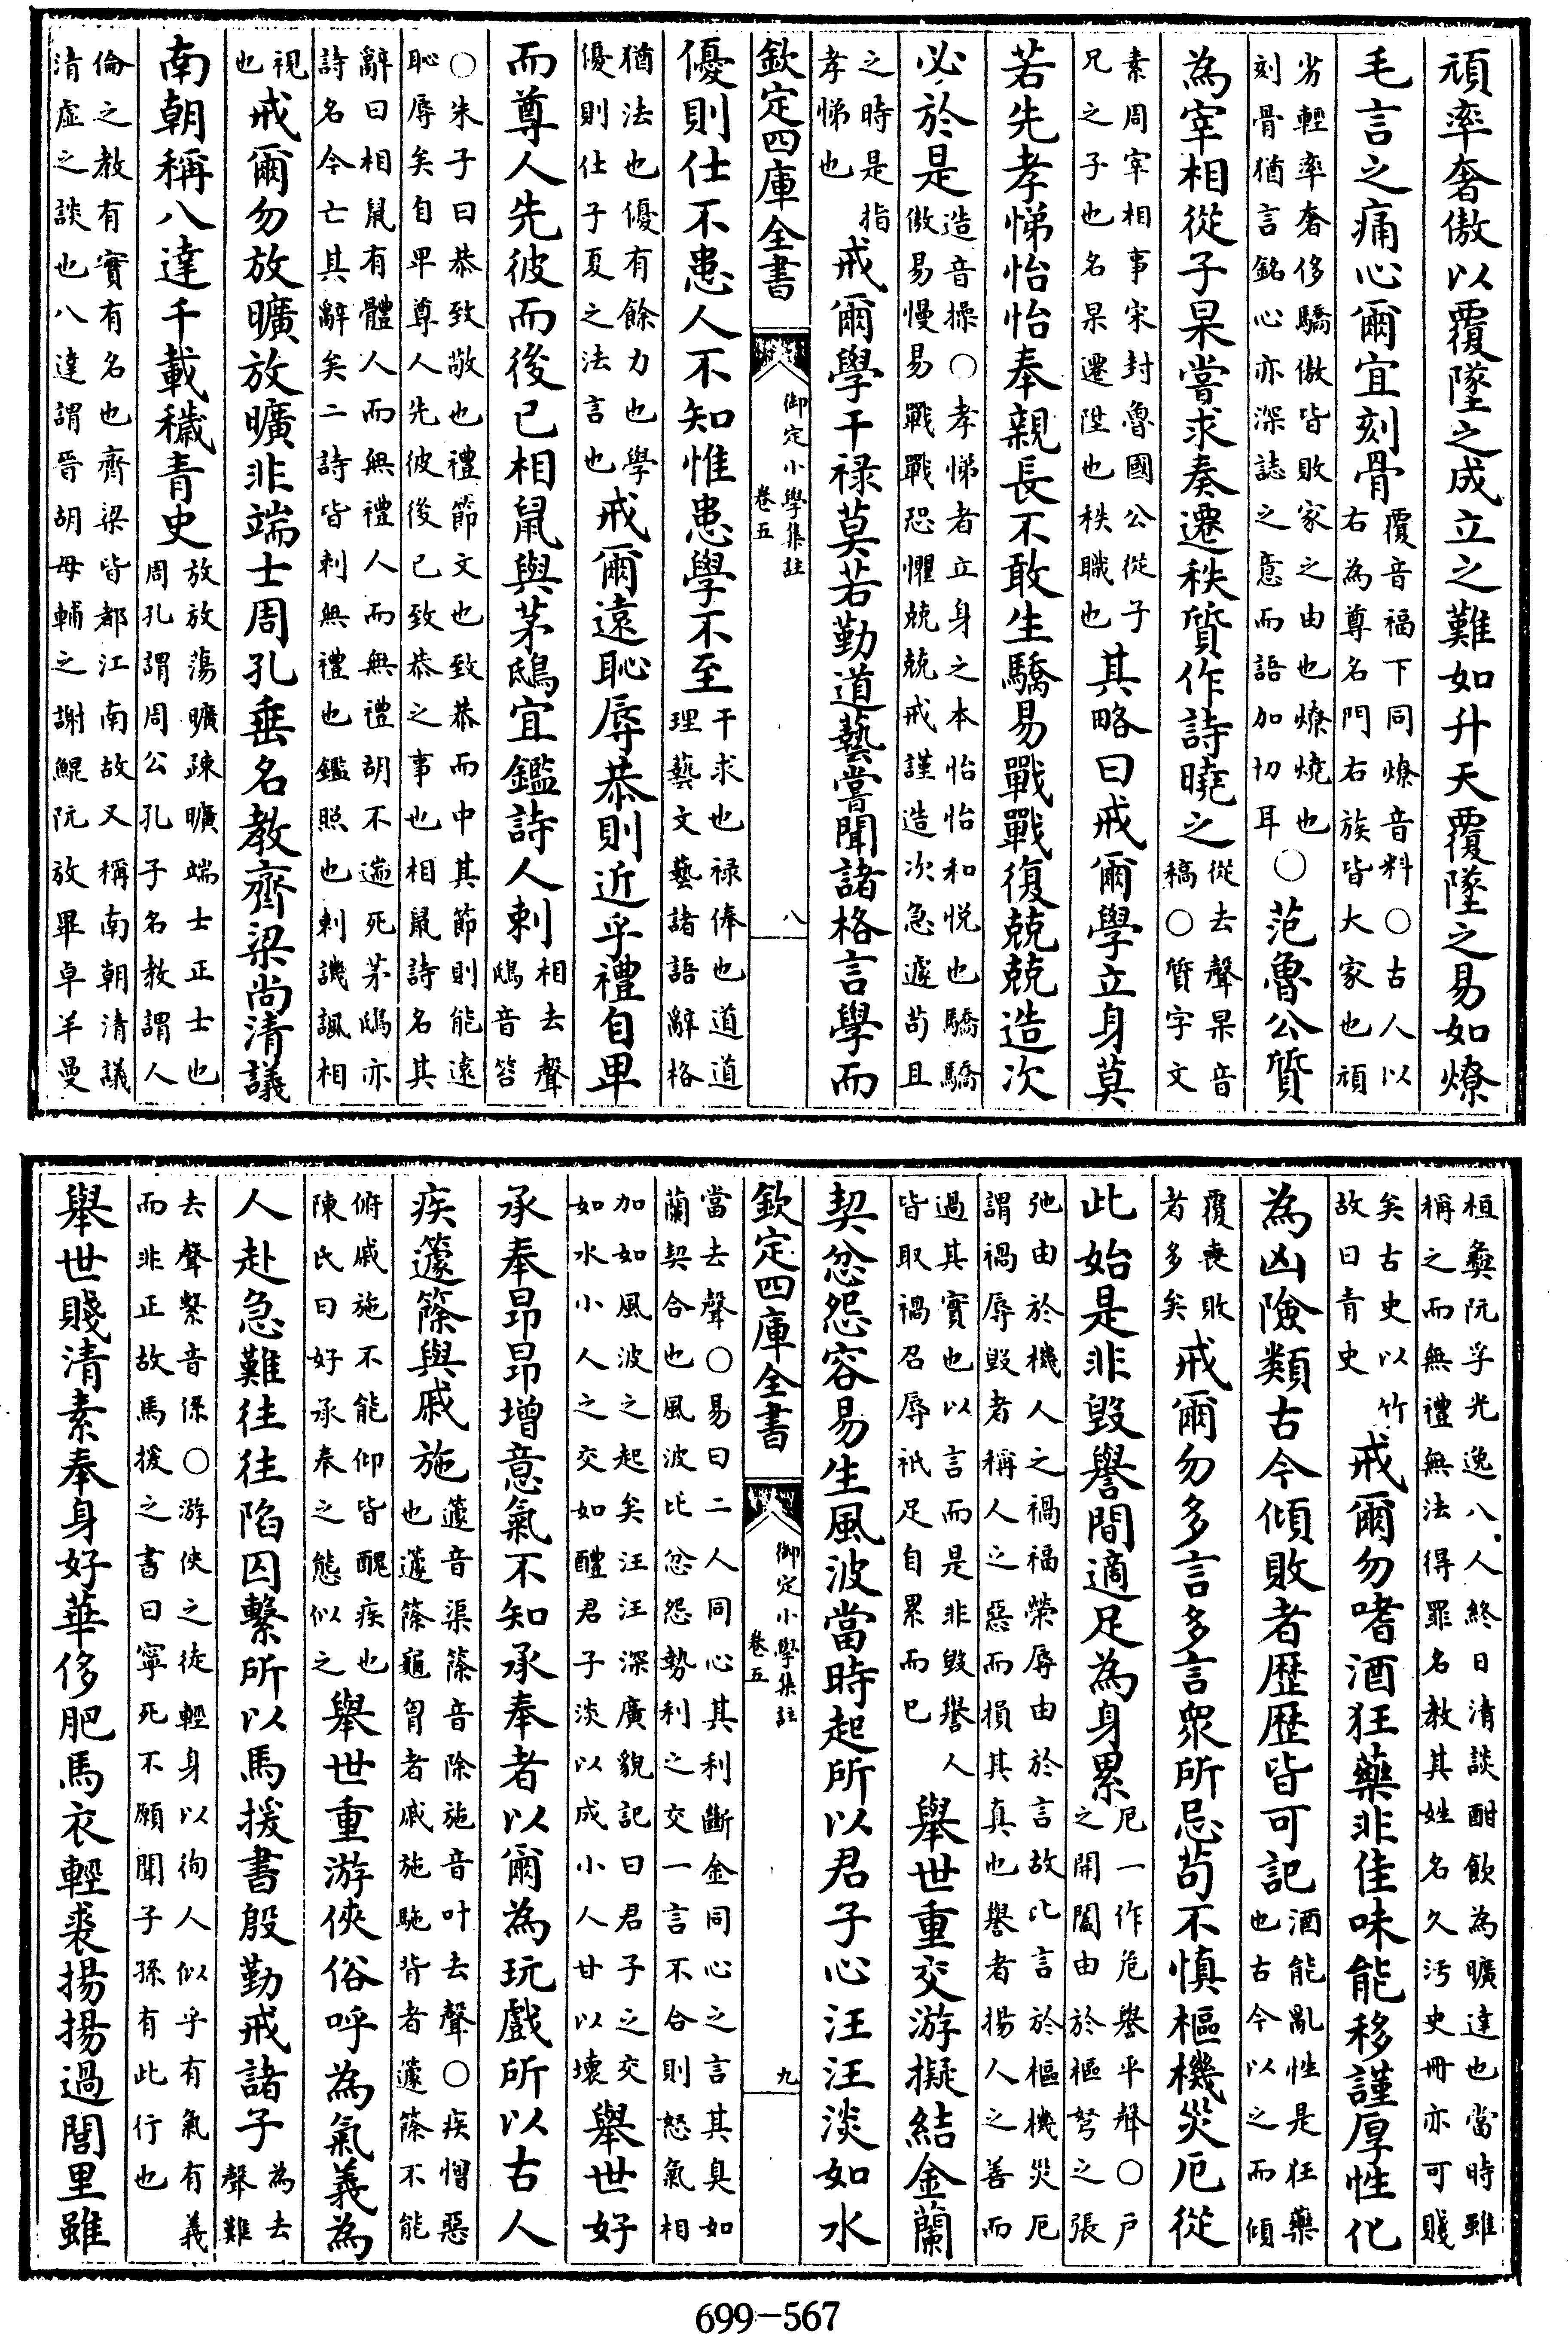 頑率奢傲以覆墜之成立之難如升天覆墜之易如燎
毛言之痛心爾宜刻骨覆音福下同燎音料○古人以右為尊名門右族皆大家也頑
劣輕率奢侈驕傲皆敗家之由也燎燒也刻骨猶言銘心亦深誌之意而語加切耳○范魯公質
為宰相從子杲嘗求奏遷秩質作詩曉之從去聲杲音稿○質字文
素周宰相事宋封魯國公從子兄之子也名杲遷陞也秩職也其略曰戒爾學立身莫
若先孝悌怡怡奉親長不敢生驕易戰戰復兢兢造次
必於是造音操○孝悌者立身之本怡怡和悅也驕驕傲易慢易戰戰恐懼兢兢戒謹造次急遽苟且
之時是指孝悌也戒爾學干祿莫若勤道藝嘗聞諸格言學而
欽定四庫全書
御定小學集註
卷五
八
優則仕不患人不知惟患學不至干求也祿俸也道道理藝文藝諸語辭格
猶法也優有餘力也學優則仕子夏之法言也戒爾遠恥辱恭則近乎禮自卑
而尊人先彼而後已相鼠與茅鴟宜鑑詩人刺相去聲鴟音笞
○朱子曰恭致敬也禮節文也致恭而中其節則能遠恥辱矣自卑尊人先彼後已致恭之事也相鼠詩名其
辭曰相鼠有體人而無禮人而無禮胡不遄死茅鴟亦詩名今亡其辭矣二詩皆刺無禮也鑑照也刺譏諷相
視也戒爾勿放曠放曠非端士周孔垂名教齊梁尚清議
南朝稱八達千載穢青史放放蕩曠疎曠端士正士也周孔謂周公孔子名教謂人
倫之教有實有名也齊梁皆都江南故又稱南朝清議清虛之談也八達謂晉胡母輔之謝鯤阮放畢卓羊曼
桓彝阮孚光逸八人終日清談酣飲為曠達也當時雖稱之而無禮無法得罪名教其姓名久汚史冊亦可賤
矣古史以竹故曰青史戒爾勿嗜酒狂藥非佳味能移謹厚性化
為凶險類古今傾敗者歷歷皆可記酒能亂性是狂藥也古今以之而傾
覆喪敗者多矣戒爾勿多言多言衆所忌苟不慎樞機災厄從
此始是非毀譽間適足為身累厄一作危譽平聲○戶之開闔由於樞弩之張
弛由於機人之禍福榮辱由於言故比言於樞機災厄謂禍辱毀者稱人之惡而損其真也譽者揚人之善而
過其實也以言而是非毀譽人皆取禍召辱祇足自累而已舉世重交游擬結金蘭
契忿怨容易生風波當時起所以君子心汪汪淡如水
欽定四庫全書
御定小學集註
卷五
九
當去聲○易曰二人同心其利斷金同心之言其臭如蘭契合也風波比忿怨勢利之交一言不合則怒氣相
加如風波之起矣汪汪深廣貌記曰君子之交如水小人之交如醴君子淡以成小人甘以壞舉世好
承奉昂昂增意氣不知承奉者以爾為玩戲所以古人
疾籧篨與戚施籧音渠篨音除施音叶去聲○疾憎惡也籧篨龜胷者戚施駞背者籧篨不能
俯戚施不能仰皆醜疾也陳氏曰好承奉之態似之舉世重游俠俗呼為氣義為
人赴急難往往陷囚繫所以馬援書殷勤戒諸子為去聲難
去聲繫音係○游俠之徒輕身以徇人似乎有氣有義而非正故馬援之書曰寧死不願聞子孫有此行也
舉世賤清素奉身好華侈肥馬衣輕裘揚揚過閭里雖
699-567